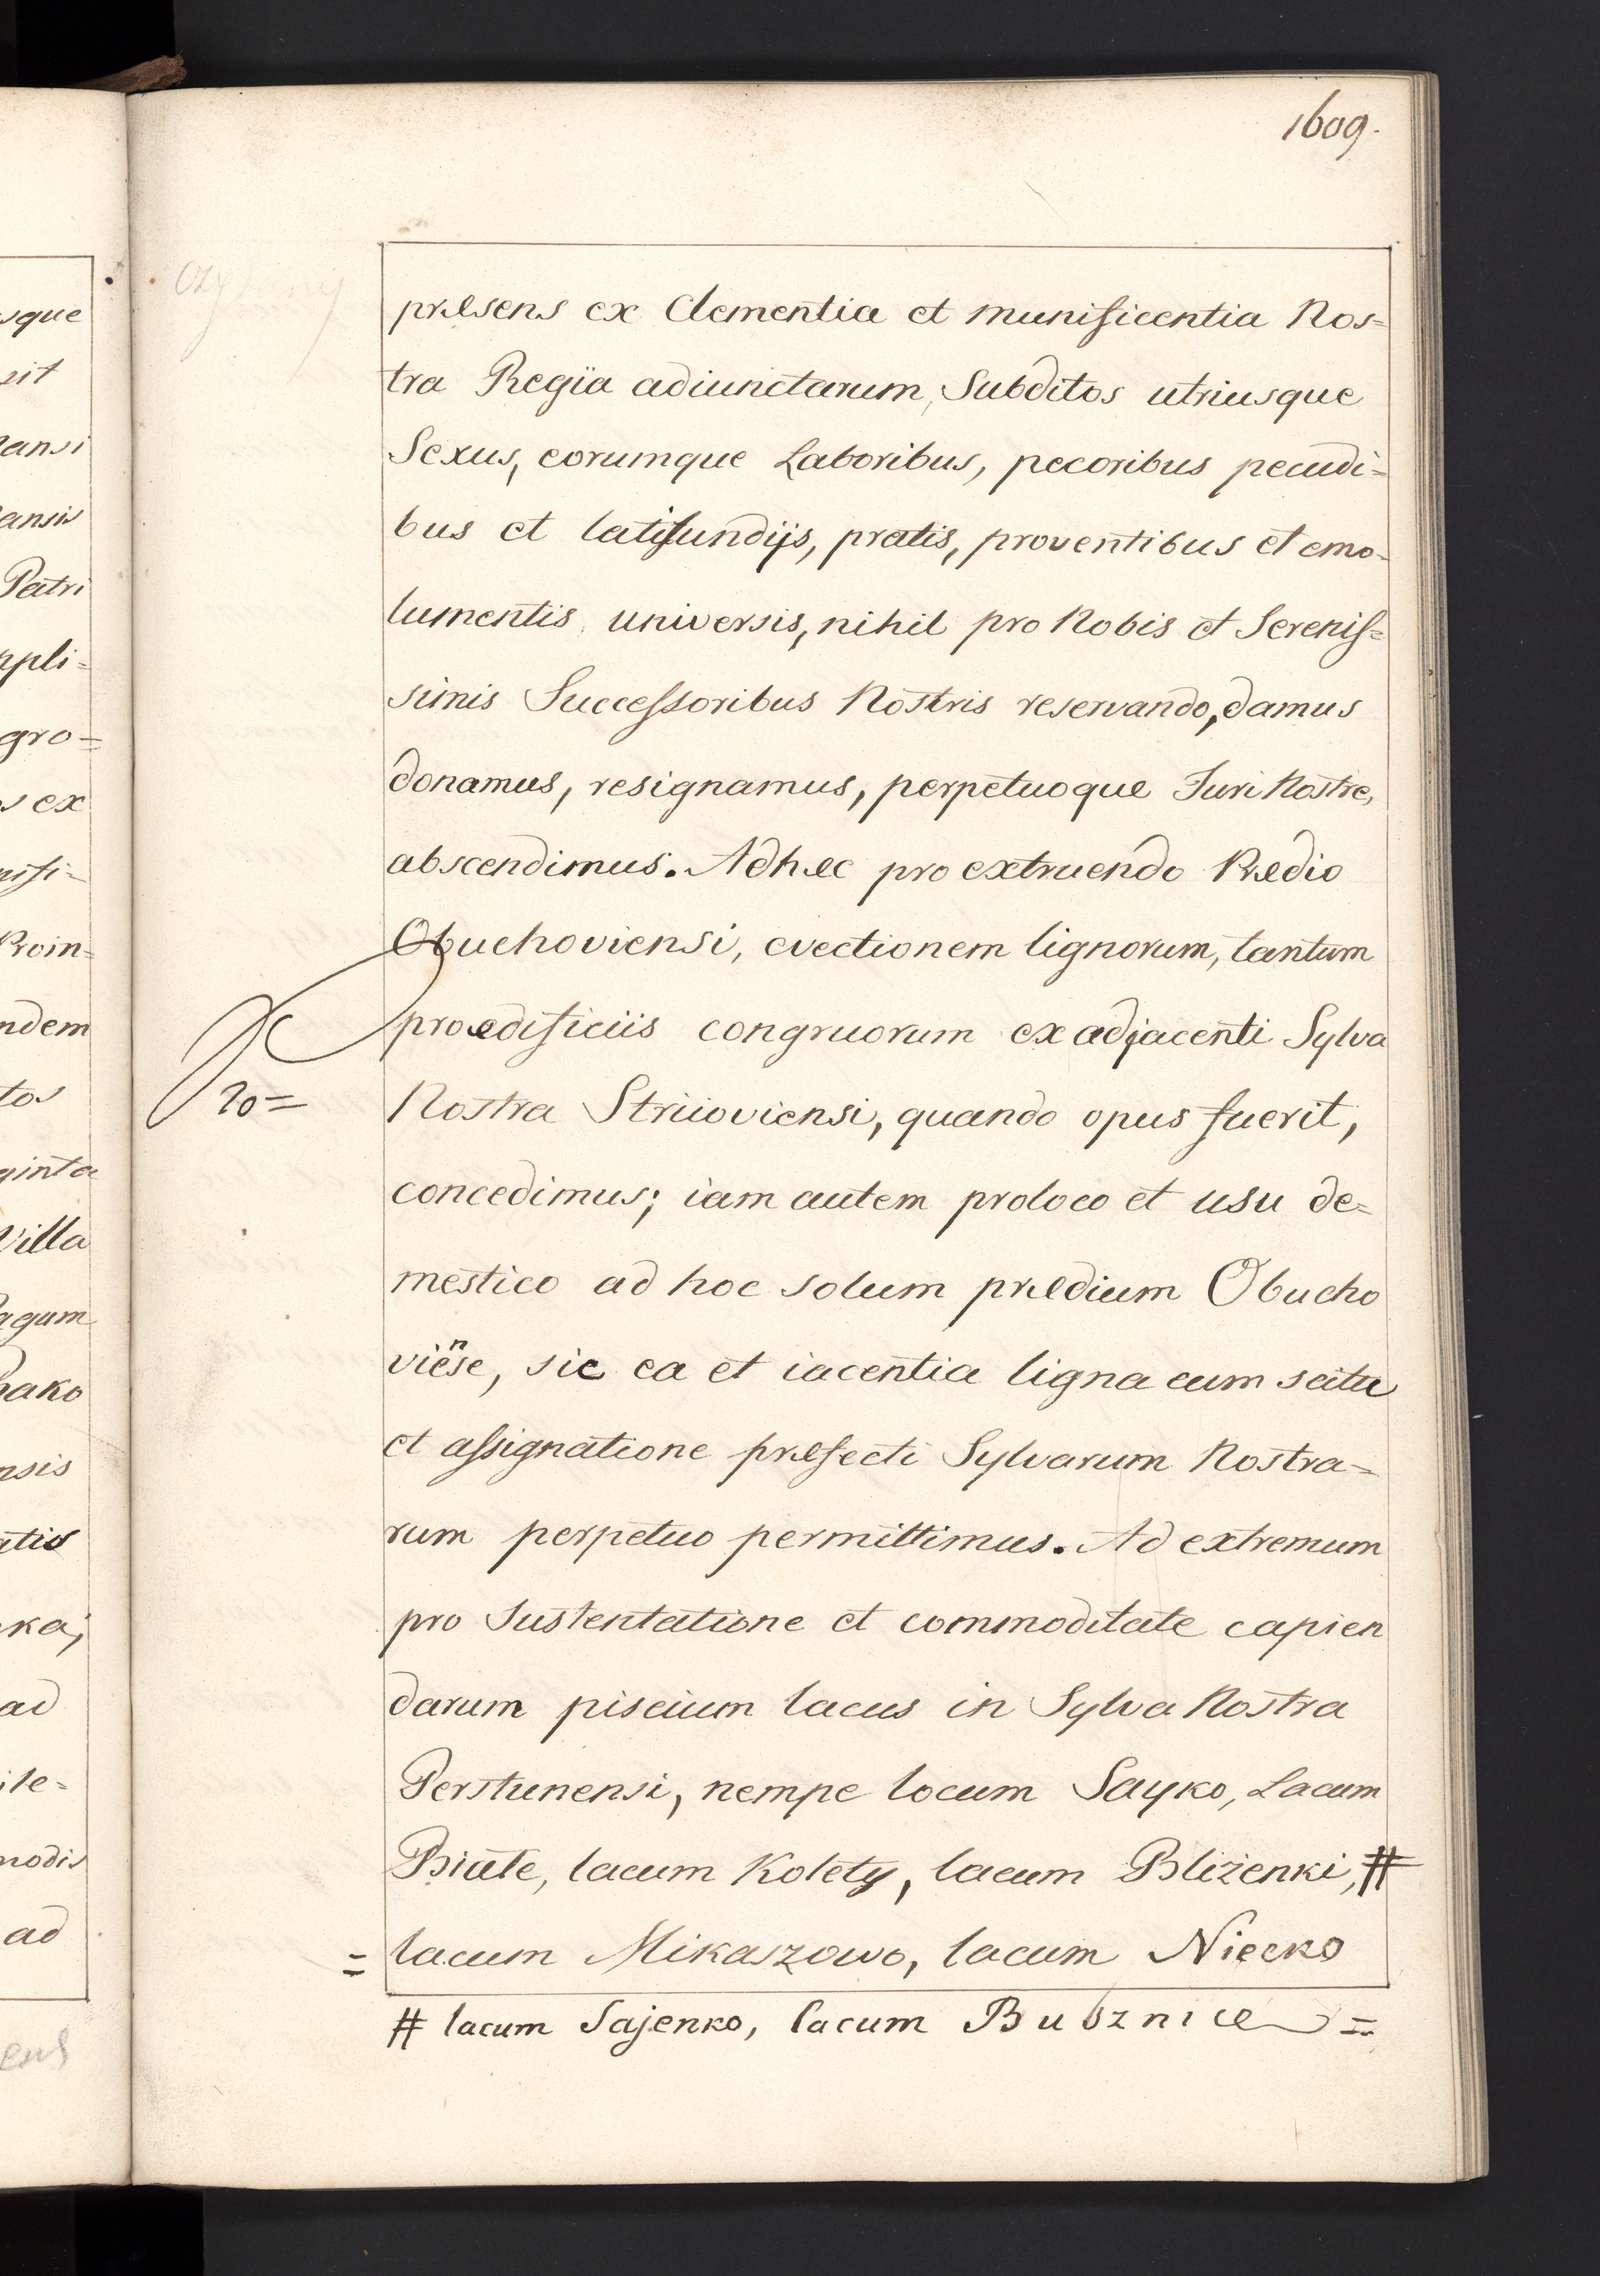 1609.
præsens ex Clementia et munificentia Nos=
tra Regia adiunctarum, Subditos utriusque
Sexus, eorumque Laboribus, pecoribus pecudi=
bus et latifundijs, pratis, proventibus et emo-
lumentis universis, nihil pro Nobis et Sereniſ=
simis Succeſsoribus Nostris reservando, damus
donamus, resignamus, perpetuoque Juri Nostre,
abscendimus. Adhæc pro extruendo Prædio
Obuchoviensi, evectionem lignorum, tantum
pro ædificiis congruorum ex adjacenti Sylva
20=
Nostra Striioviensi, quando opus fuerit,
concedimus; iam autem pro loco et usu de=
mestico ad hoc solum prædium Obucho
viense, sic ea et iacentia ligna cum scitu
et aſsignatione præfecti Sylvarum Nostra=
rum perpetuo permittimus. Ad extremum
pro Sustentatione et commoditate capien
darum piscium lacus in Sylva Nostra
Perstunensi, nempe locum Sayko, Lacum
Biate, lacum Kolety, lacum Bliżenki, #
= lacum Mikaszowo, lacum Niecko
# lacum Sajenko, lacum Bubznice =
sque
sit
ansi
ansis
Patri
ppli=
gro=
s ex
nifi=
Proin=
ndem
tos
ginta
Villa
agum
hako
nsis
atis
ka,
ad
ile=
modis
ad
ens